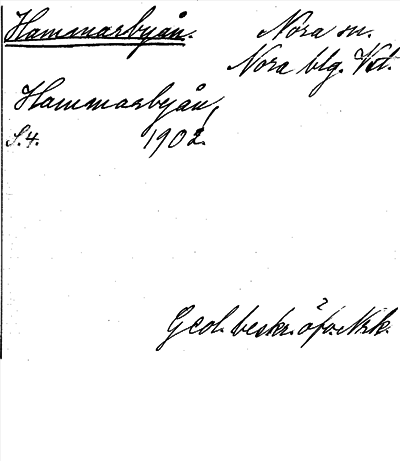 Hammarbyån. Nora sn.
Nora blg. Vstl.
Hammarbyån,
S. 4. 1902.
Geol. beskr. öfv. Nrk.